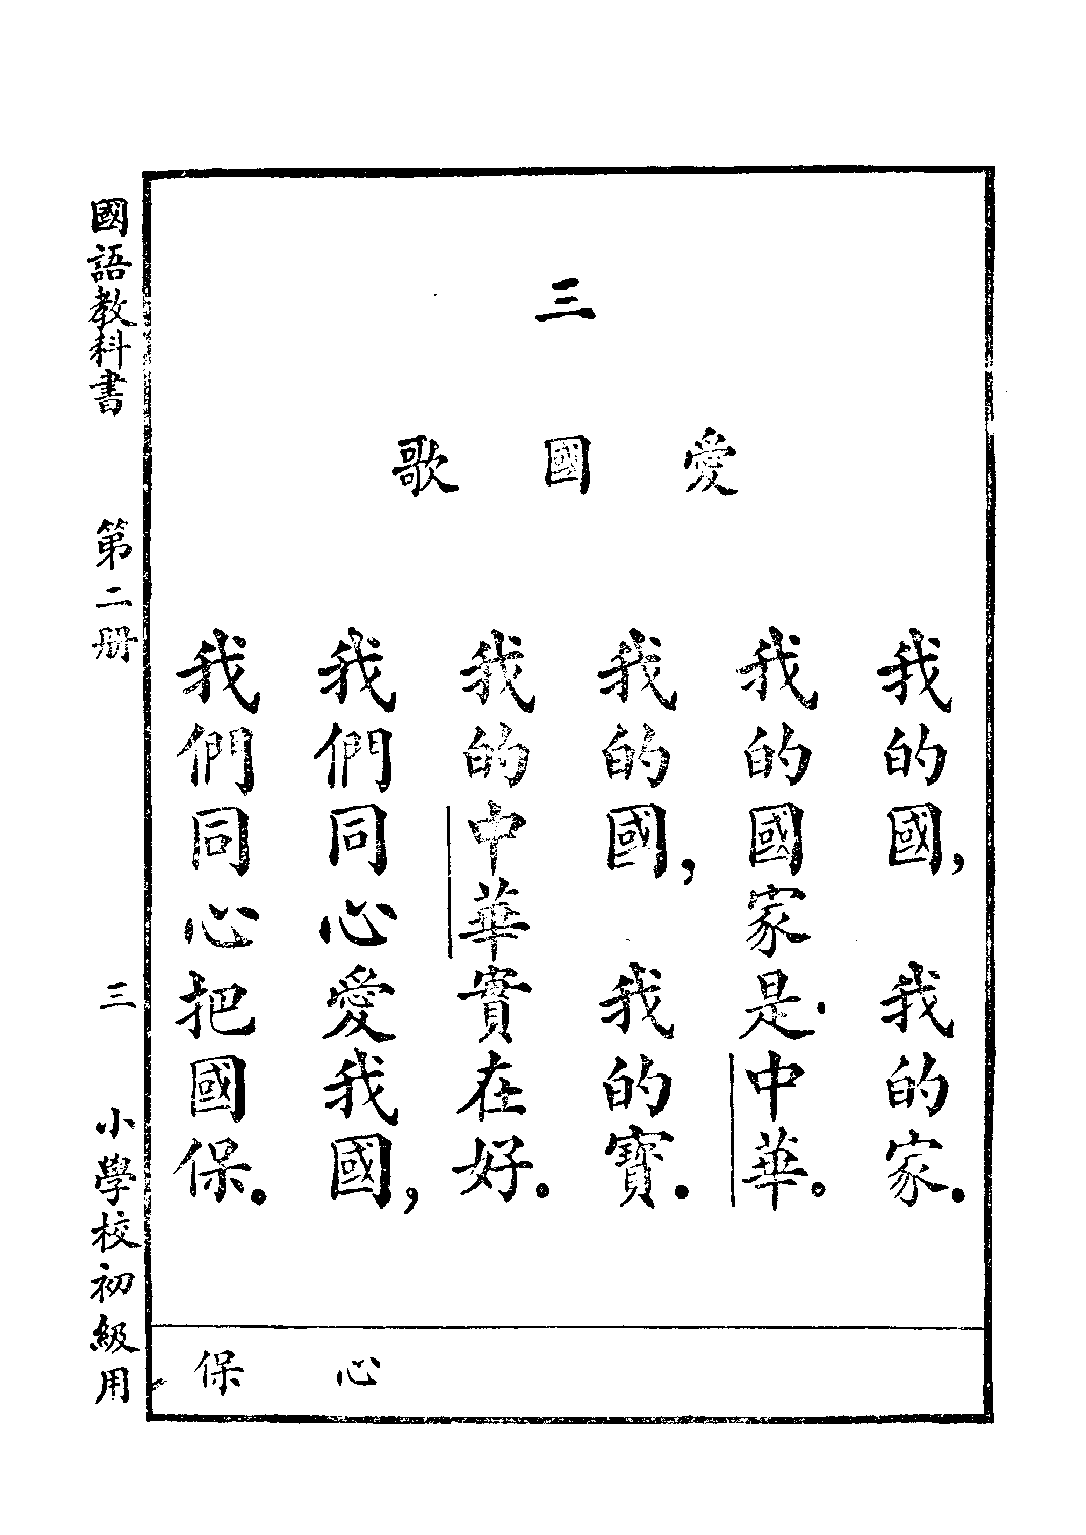 三
愛國歌
我的國，我的家。
我的國家是中華。
我的國，我的寶。
我的中華實在好。
我們同心愛我國，
我們同心把國保。
心 保
國語教科書 第二册 三 小學校初級用